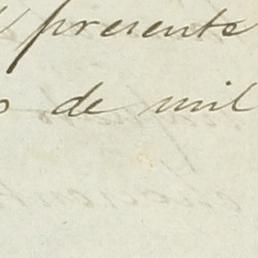 presente
de mil